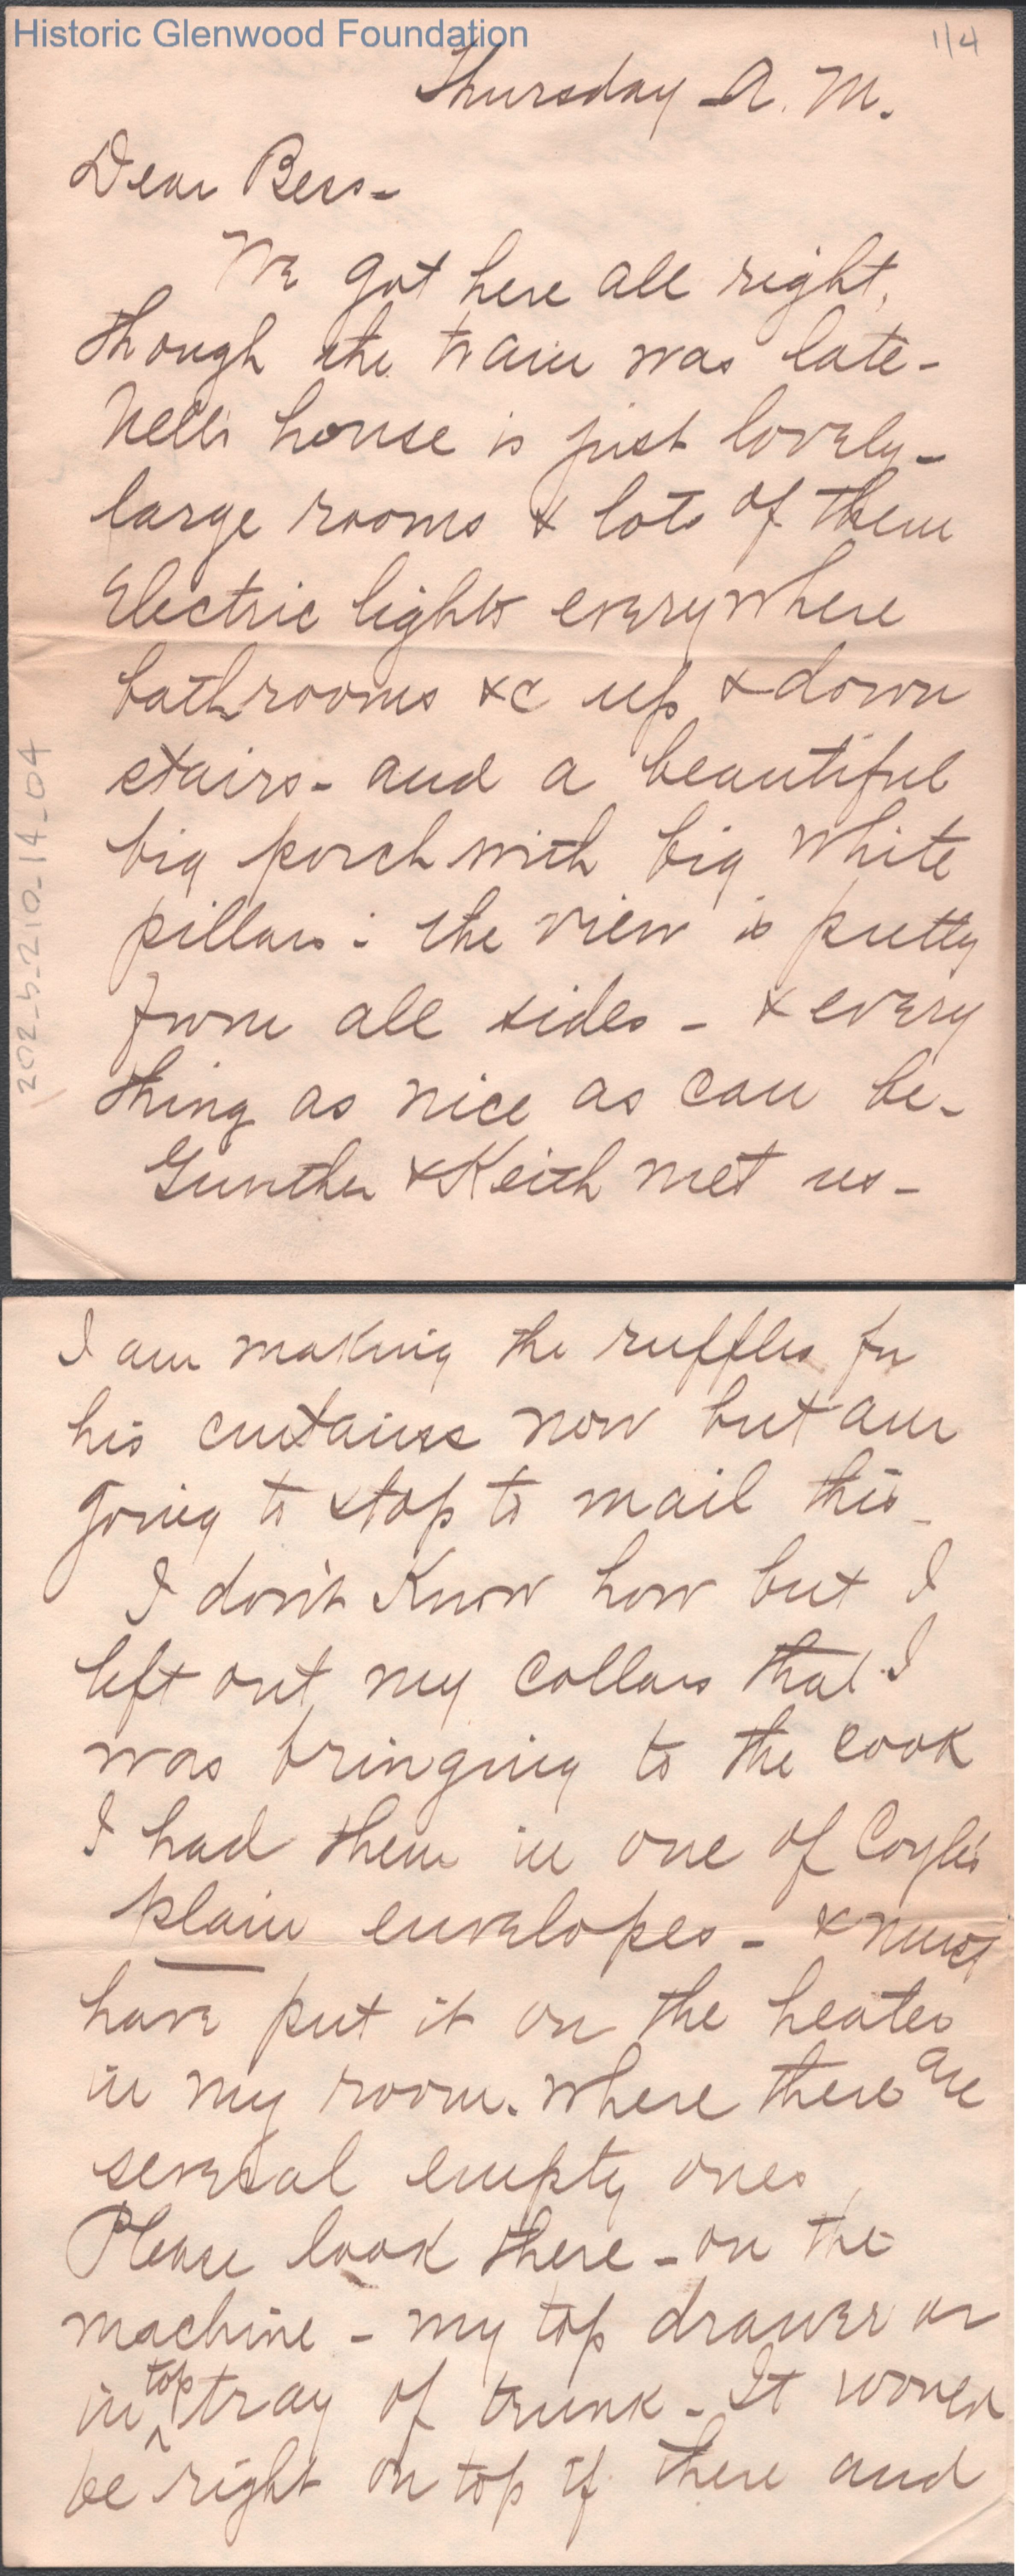 Historic Glenwood Foundation
1/4
Thursday A.M.
Dear Bess-
We got here all right,
though the train was late-
Nell's house is just lovely-
large rooms & lots of them
Electric lights everywhere
bathrooms &c up & down
stairs- and a beautiful
big porch with big white
pillars: the view is pretty
from all sides - & every
thing as nice as can be-
Gunther & Keith met us-
202_5_210_14_04
I am making the ruffles for
his curtains now but am
going to stop to mail this-
I don't know how but I
left out my collars that I
was bringing to the cook
I had them in one of Coyle's
plain envelopes - & must
have put it on the heater
in my room. where there are
several empty ones,
Please look there - on the
machine - my top drawer or
in top tray of trunk - It would
be right on top if there and